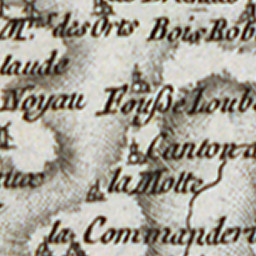 M.rs des Orts Bois Rob
laude
Noyau Fousse Loub
Canton
la Motte
la Commanderi